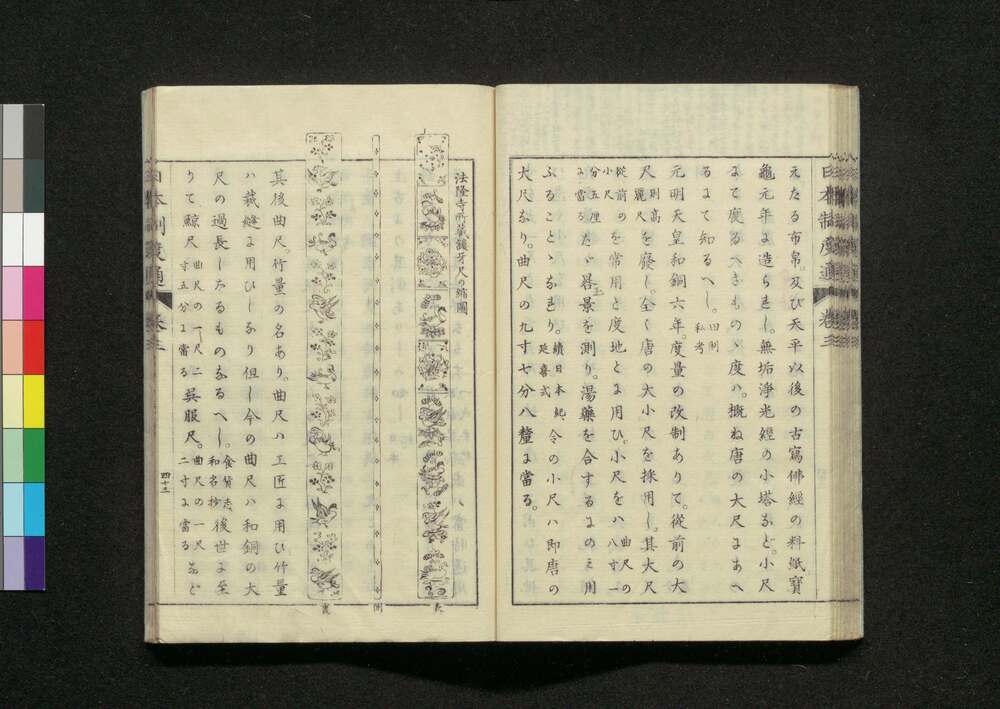 日本制度通 巻三
えたる布帛。及び天平以後の古寫佛經の料紙寶
龜元年に造られし。無垢淨光經の小塔など。小尺
にて度るべきものゝ度ハ。概ね唐の大尺にあへ
るにて知るへし。田制私考
元明天皇和銅六年。度量の改制ありて。從前の大
尺則高麗尺を廢し。全く唐の大小尺を採用し。其大尺
從前の小尺を常用と度地とに用ひ。小尺を八寸一分五厘に當る
曲尺の
たゝ晷景を測り。湯藥を合するにのミ用
ふることゝなれり。續日本紀、延喜式 令の小尺ハ即唐の
大尺なり。曲尺の九寸七分八釐に當る。
法隆寺所藏鏤牙尺の縮圖
表
側
裏
其後曲尺。竹量の名あり。曲尺ハ工匠に用ひ竹量
ハ裁縫に用ひしなり但し今の曲尺ハ和銅の大
尺の過長したるものなるへし。食貨志、和名抄 後世に至
りて鯨尺曲尺の一尺二寸五分に當る 呉服尺。曲尺の一尺二寸に當る など
四十三
日本制度通 卷三